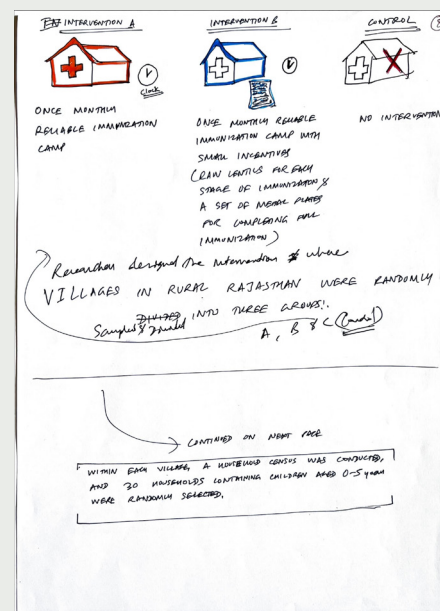 INTERVENTION A
INTERVENTION B
CONTROL
Clock
ONCE MONTHLY
RELIABLE IMMUNIZATION
CAMP
ONCE MONTHLY RELIABLE
IMMUNIZATION CAMP WITH
SMALL INCENTIVES
(RAW LENTILS FOR EACH
STAGE OF IMMUNIZATION &
A SET OF METAL PLATES
FOR COMPLETING FULL
IMMUNIZATION)
NO INTERVENTION
Researchers designed the intervention where
VILLAGES IN RURAL RAJASTHAN WERE RANDOMLY
DIVIDED INTO THREE GROUPS:
Sampled &
A, B & C (Control)
CONTINUED ON NEXT PAGE
WITHIN EACH VILLAGE, A HOUSEHOLD CENSUS WAS CONDUCTED,
AND 30 HOUSEHOLDS CONTAINING CHILDREN AGED 0-5 years
WERE RANDOMLY SELECTED.